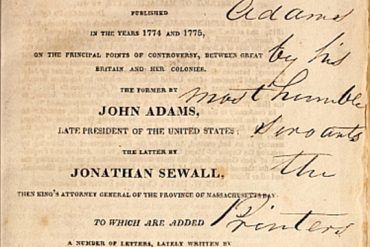 PUBLISHED
IN THE YEARS 1774 AND 1775,
ON THE PRINCIPAL POINTS OF CONTROVERSY, BETWEEN GREAT
BRITAIN AND HER COLONIES.
THE FORMER BY
JOHN ADAMS,
LATE PRESIDENT OF THE UNITED STATES:
THE LATTER BY
JONATHAN SEWALL,
THEN KING'S ATTORNEY GENERAL OF THE PROVINCE OF MASSACHUSETTS BAY.
TO WHICH ARE ADDED
A NUMBER OF LETTERS, LATELY WRITTEN BY
Adams
by his
most humble
servants
the
Printers